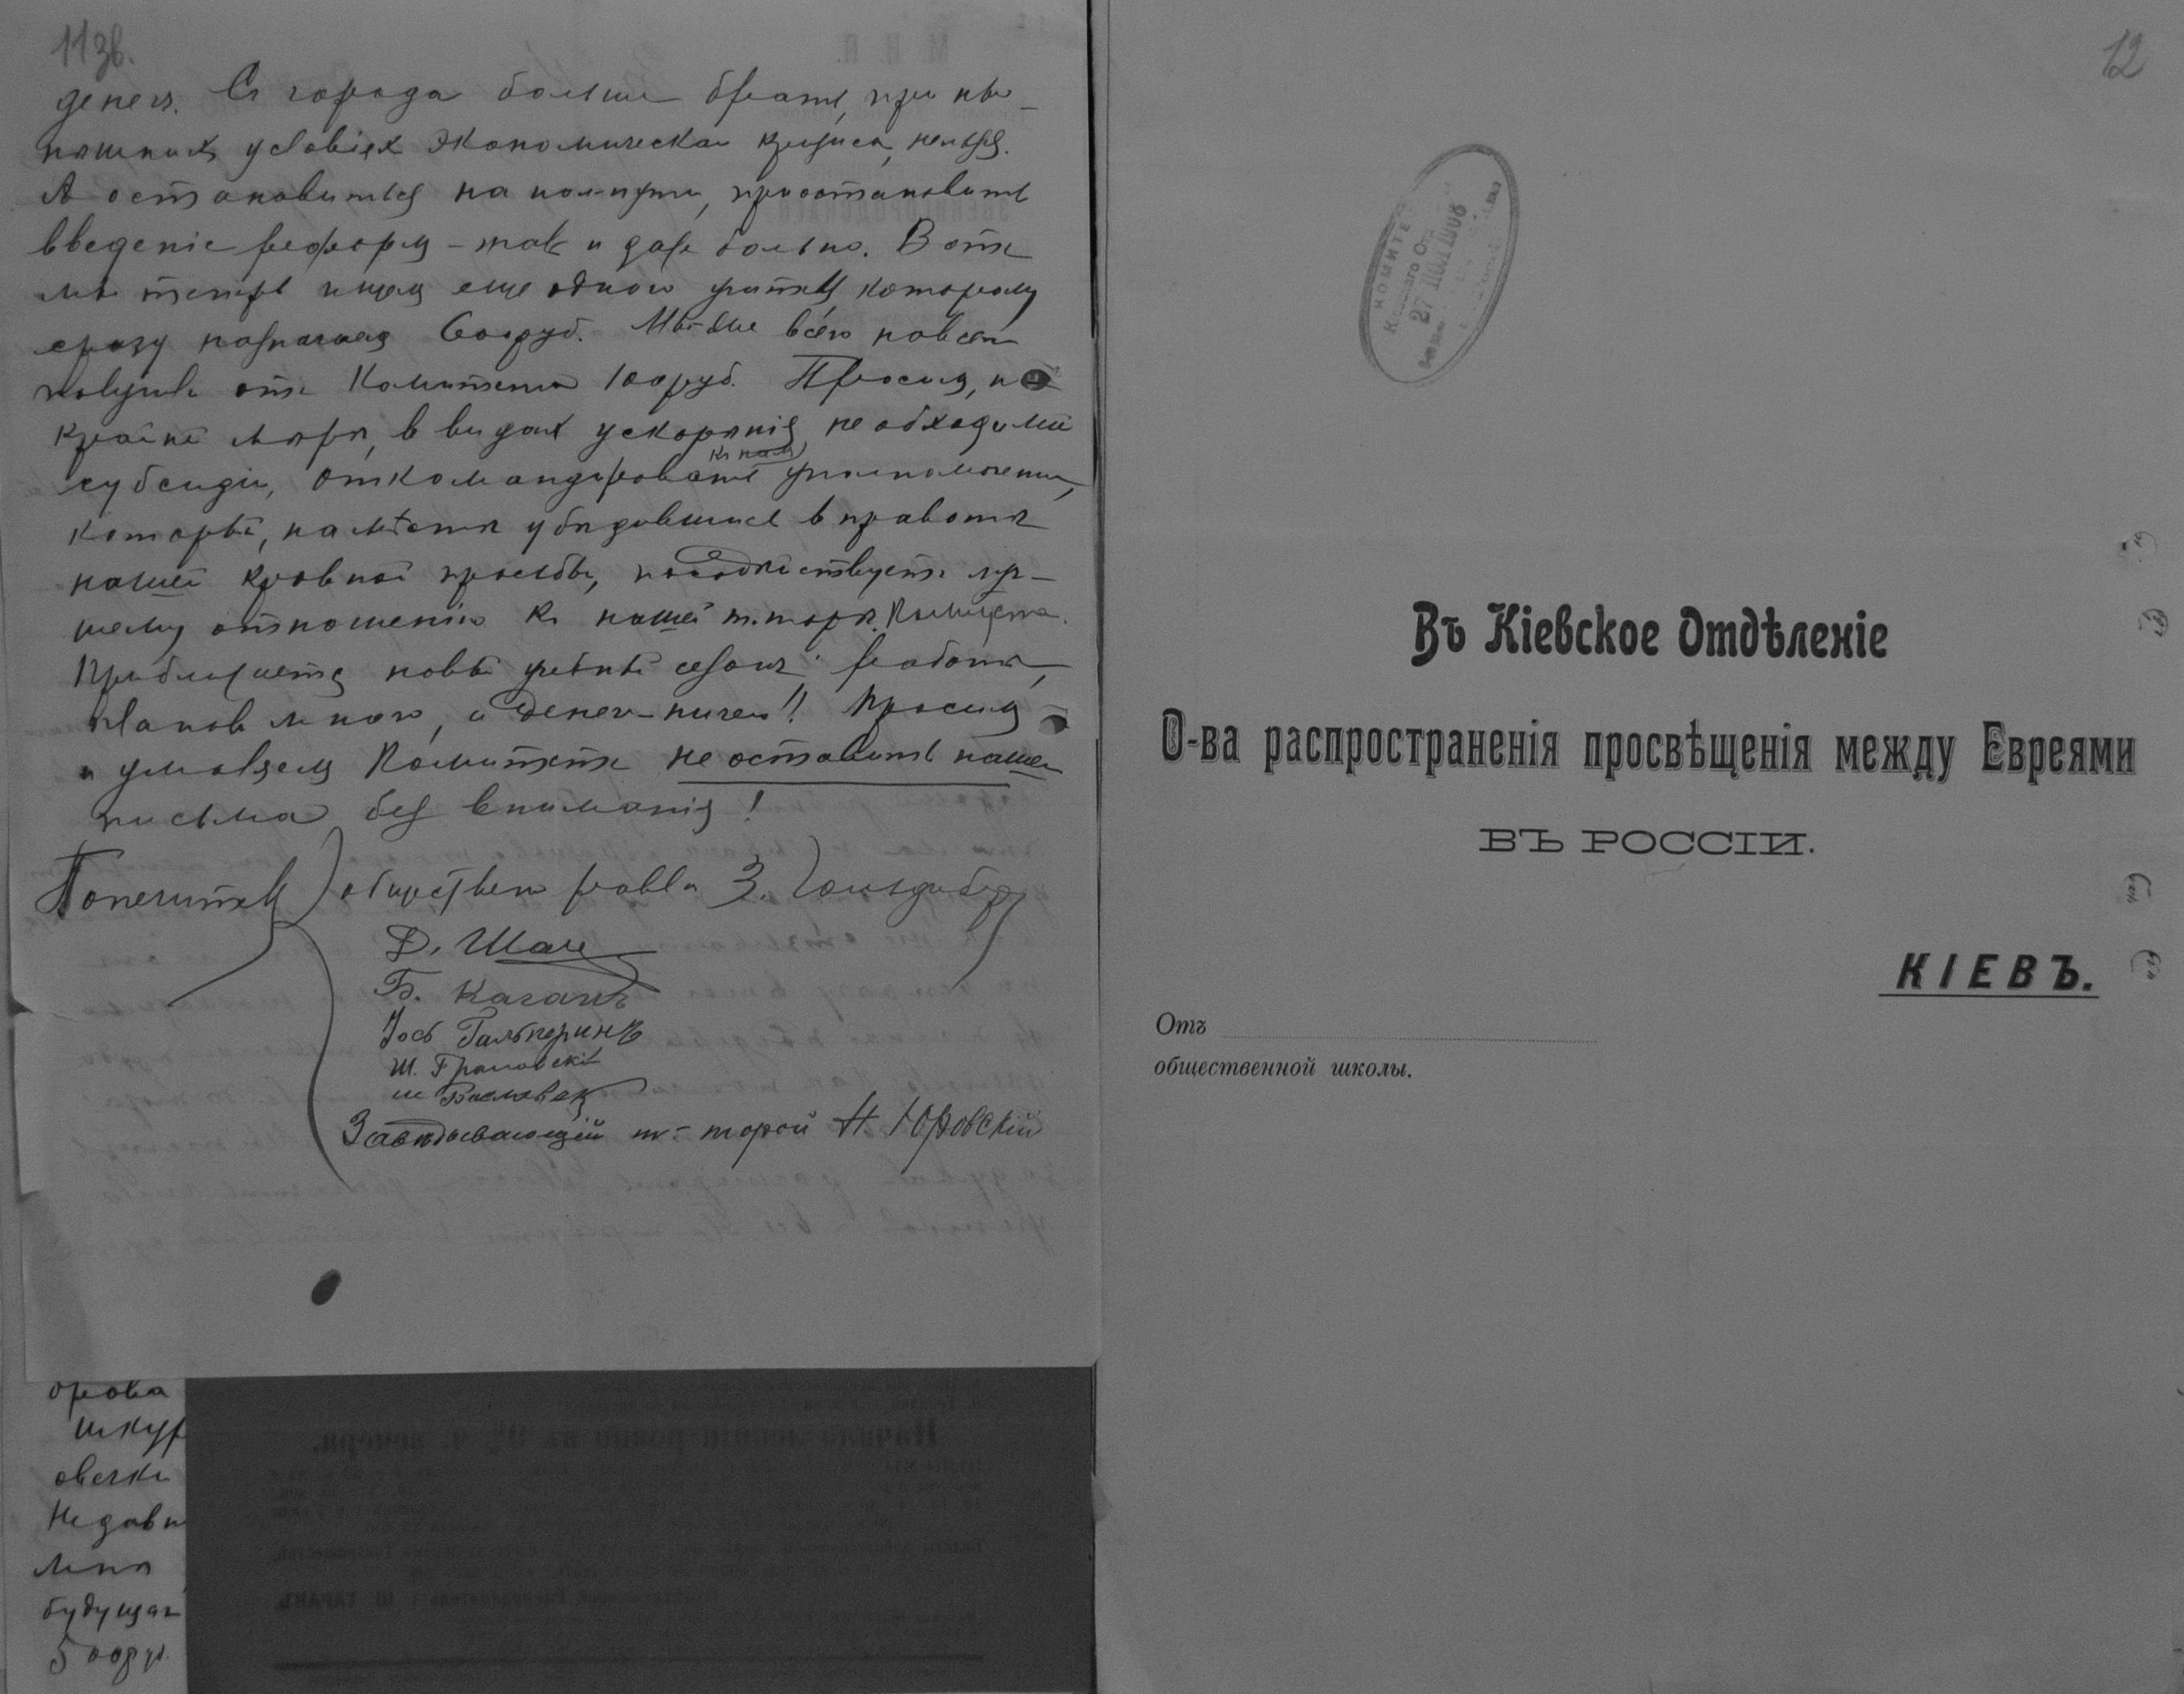 11 зв.
денег. Съ города больше брать, при ны-
нѣшних условіях экономическаго кризиса, нельзя.
А остановиться на пол-пути, приостановить
введеніе реформ - так и даже больно. Вот
мы теперь ищем еще одного учителя, которому
сразу назначаем 600 руб. Мы-же всего
получили от Комитета 100 руб. Просим, по
крайней мѣрѣ, в видах ускоренія необходимой
субсидіи, откомандировать къ нам уполномоченнаго,
который, на мѣстѣ убѣдившись в правотѣ
нашей кровной просьбы, посодѣйствует луч-
шему отношенію къ нашей т.-торѣ Комитета.
Приближается новый учебный сезон работы,
планов много, а денег - ничего!! Просим
и умоляем Комитет не оставить нашего
письма без вниманія!
Попечители общественный раввин З. Гольденберг
Д. Шац
Б. Каганъ
Іось Гальперинъ
Ш. Грановскій
Ш.
Завѣдывающій т.-торой Н Юровскій
орова
шкур
овечки
Недавн
мѣня
будущаг
500 ру
12
КОМИТЕ
27 ІЮЛ 1908
Въ Кіевское Отдѣленіе
О-ва распространенія просвѣщенія между Евреями
ВЪ РОССІИ.
КІЕВЪ.
Отъ
общественной школы.